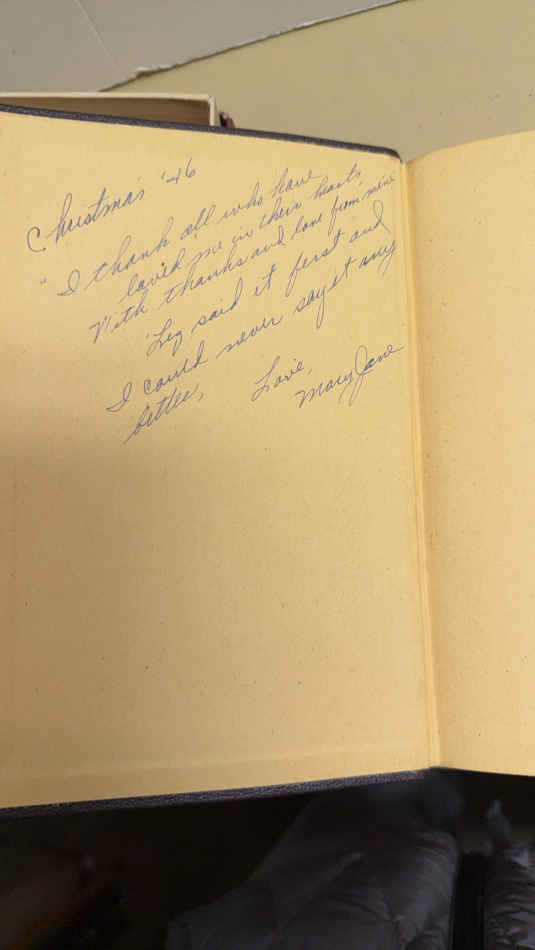 Christmas '46
"I thank all who have
loved me in their hearts
With thanks and love from mine
'Liz said it first and
I could never say it any
better,
Love,
Mary Jane